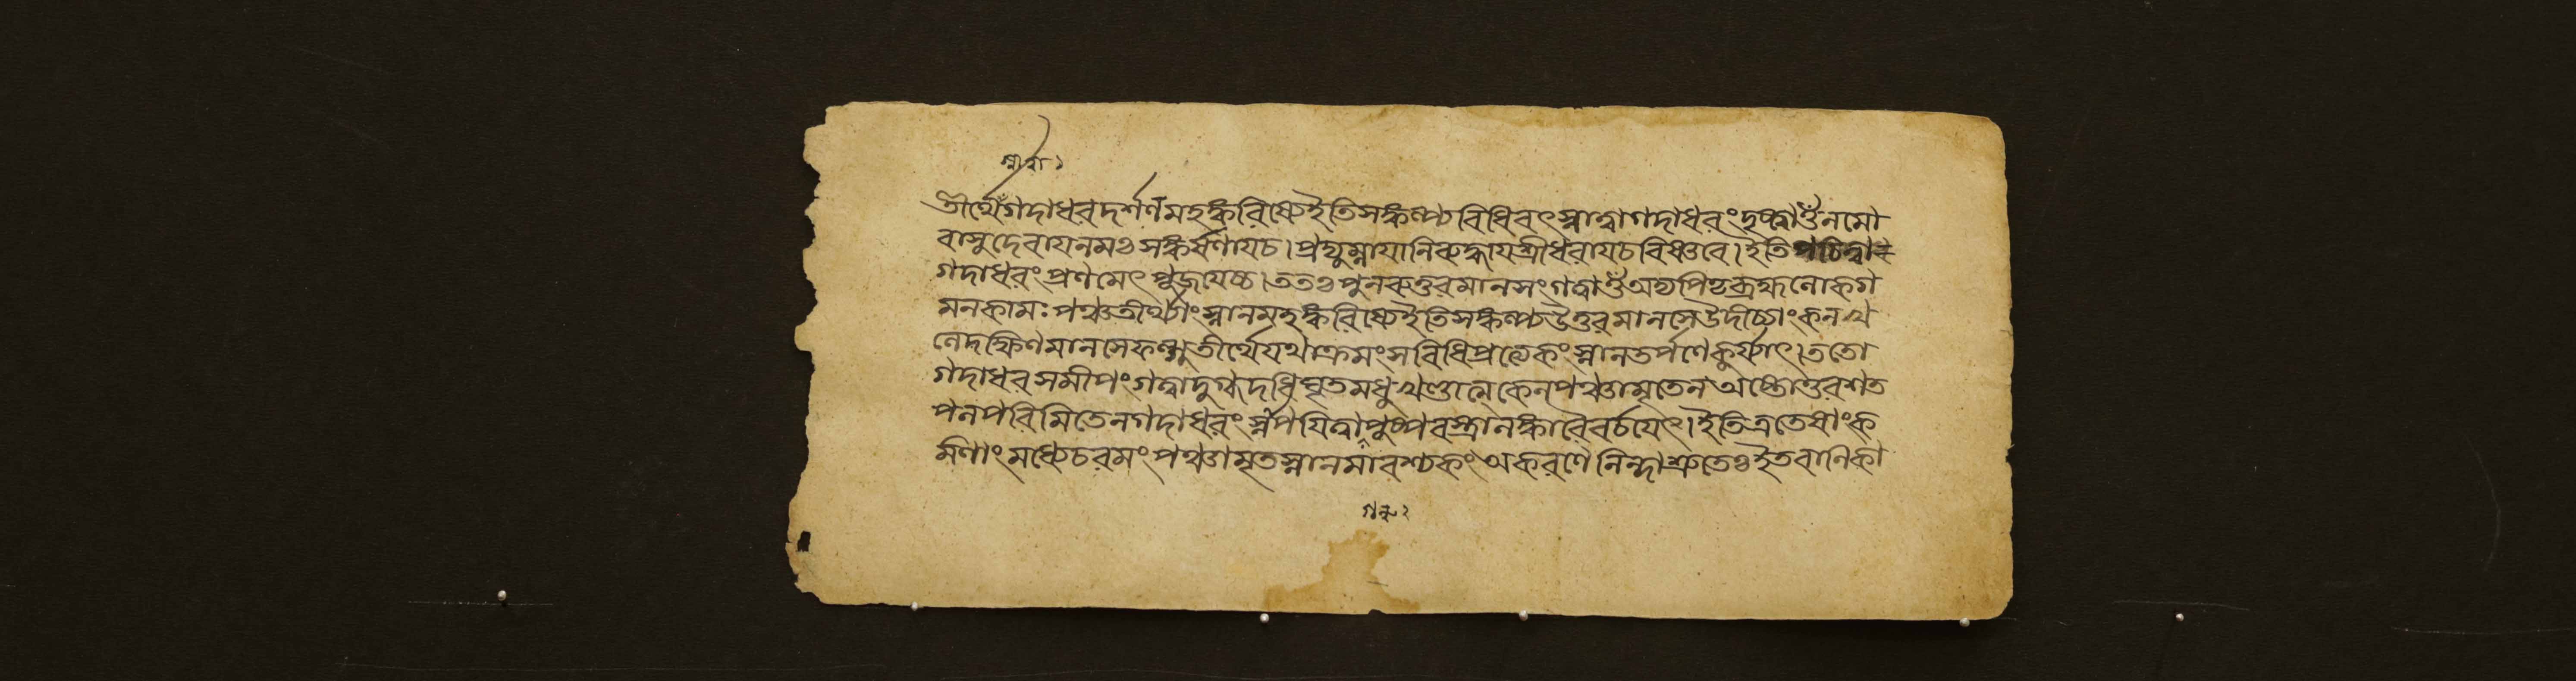 তীর্থেগদাধরদর্শণমহঙ্করিষ্যেইতিসঙ্কল্প্যবিধিবৎস্নাত্বাগদাধরংদৃষ্ট্বাওঁনমো
বাসুদেবাযনমঃসঙ্কর্ষণাযচ।প্রদ্যুম্নাযানিরুদ্ধাযশ্রীধরাযচবিষ্ণবে।ইতি
গদাধরংপ্রণমেৎপূজযেচ্চ।ততঃপুনরুত্তরমানসংগত্বাওঁঅদ্যপিতৃব্রহ্মলোকগ
মনকামঃপঞ্চতীর্থ্যাংস্নানমহঙ্করিষ্যেইতিসঙ্কল্প্যউত্তরমানসেউদীচ্যাংকনখ
লেদক্ষিণমানসেফল্গুতীর্থেযথাক্রমংসবিধিপ্রত্যেকংস্নানতর্পণেকুর্য্যাৎ।ততো
গদাধরসমীপংগত্বাদুগ্ধদধিঘৃতমধুখণ্ডাত্মকেনপঞ্চামৃতেনঅষ্টোত্তরশত
পলপরিমিতেনগদাধরংস্নপযিত্বাপুষ্পবস্ত্রালঙ্কারৈরর্চযেৎ।ইতিএতেষাংক
র্মণাংমধ্যেচরমংপঞ্চামৃতস্নানমাবশ্যকংঅকরণেনিন্দাশ্রুতেঃইতরানিকা